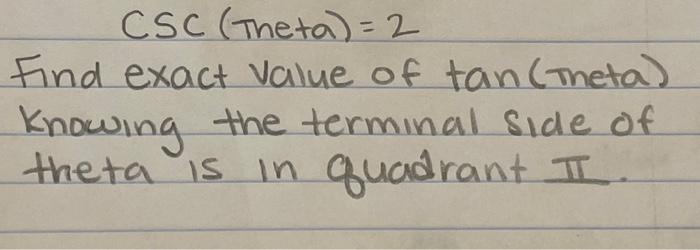 CSC (Theta) = 2
Find exact value of tan (Theta)
Knowing the terminal side of
theta is in quadrant II.